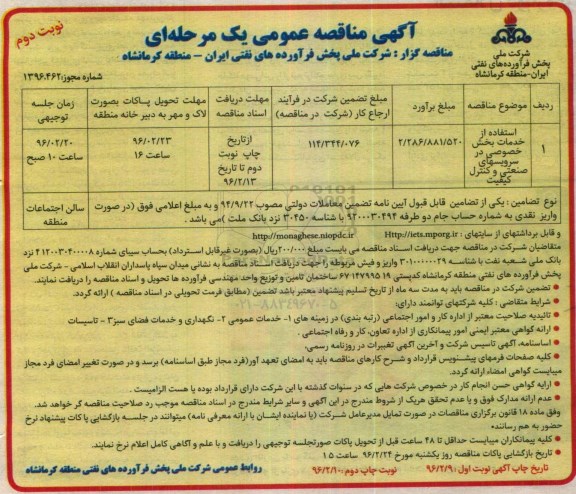 نوبت دوم
آگهی مناقصه عمومی یک مرحله‌ای
مناقصه گزار : شرکت ملی پخش فرآورده های نفتی ایران – منطقه کرمانشاه
شرکت ملی
پخش فرآورده‌های نفتی
ایران-منطقه کرمانشاه
شماره مجوز:۱۳۹۶.۴۶۲
ردیف
موضوع مناقصه
مبلغ برآورد
مبلغ تضمین شرکت در فرآیند ارجاع کار (شرکت در مناقصه)
مهلت دریافت اسناد مناقصه
مهلت تحویل پاکات بصورت لاک و مهر به دبیر خانه منطقه
زمان جلسه توجیهی
۱
استفاده از خدمات بخش خصوصی در سرویسهای صنعتی و کنترل کیفیت
۲/۲۸۶/۸۸۱/۵۲۰
۱۱۴/۳۴۴/۰۷۶
ازتاریخ چاپ نوبت دوم تا تاریخ ۹۶/۲/۱۳
۹۶/۰۲/۲۳ ساعت ۱۶
۹۶/۰۲/۲۰ ساعت ۱۰ صبح
نوع تضامین : یکی از تضامین قابل قبول آیین نامه تضمین معاملات دولتی مصوب ۹۴/۹/۲۲ و به مبلغ اعلامی فوق (در صورت
واریز نقدی به شماره حساب جام دو طرفه ۹۲۰۰۰۳۰۴۹۴ با شناسه ۳۰۴۵۰ نزد بانک ملت ) می باشد .
سالن اجتماعات منطقه
و قابل برداشتهای از سایتهای : http://iets.mporg.ir http://monaghese.niopdc.ir
متقاضیان شرکت در مناقصه جهت دریافت اسناد مناقصه می بایست مبلغ ۲۰۰/۰۰۰ریال (بصورت غیرقابل استرداد) بحساب سیبای شماره ۴۱۲۰۰۳۰۴۰۰۰۸ نزد
بانک ملی شعبه نفت با شناسه ۳۰۱۰۰۰۰۰۰۲۹ واریز و فیش مربوطه را جهت دریافت اسناد مناقصه به نشانی میدان سپاه پاسداران انقلاب اسلامی – شرکت ملی
پخش فرآورده های نفتی منطقه کرمانشاه کدپستی ۶۷۱۴۷۹۹۵۱۹ ساختمان تامین و توزیع واحد مهندسی فرآورده ها تحویل و اسناد مناقصه را دریافت نمایند.
• تضمین شرکت در مناقصه باید به مدت سه ماه از تاریخ تسلیم پیشنهاد معتبر باشد تضمین (مطابق فرمت تحویلی در اسناد مناقصه ) ارائه گردد.
• شرایط متقاضی : کلیه شرکتهای توانمند دارای:
• تائیدیه صلاحیت معتبر از اداره کار و امور اجتماعی (رتبه بندی) در زمینه های ۱- خدمات عمومی ۲- نگهداری و خدمات فضای سبز۳ - تاسیسات
• ارائه گواهی معتبر ایمنی امور پیمانکاری از اداره تعاون، کار و رفاه اجتماعی .
• اساسنامه، آگهی تاسیس شرکت و آخرین آگهی تغییرات در روزنامه رسمی.
• کلیه صفحات فرمهای پیشنویس قرارداد و شرح کارهای مناقصه باید به امضای تعهد آور(فرد مجاز طبق اساسنامه) برسد و در صورت تغییر امضای فرد مجاز
میبایست گواهی امضاء ارائه گردد.
• ارایه گواهی حسن انجام کار در خصوص شرکت هایی که در سنوات گذشته با این شرکت دارای قرارداد بوده یا هست الزامیست .
• عدم ارائه مدارک فوق و یا عدم تحقق هریک از شروط مندرج در این آگهی و سایر شرایط مندرج در اسناد مناقصه موجب رد صلاحیت مناقصه گر خواهد شد.
وفق ماده ۱۸ قانون برگزاری مناقصات در صورت تمایل مدیرعامل شرکت (یا نماینده ایشان با ارائه معرفی نامه) میتوانند در جلسه بازگشایی پاکات پیشنهاد نرخ
حضور به هم رسانند»
• کلیه پیمانکاران میبایست حداقل تا ۴۸ ساعت قبل از تحویل پاکات صورتجلسه توجیهی را دریافت و با علم و آگاهی کامل اعلام نرخ نمایند.
• تاریخ بازگشایی پاکات مناقصه روز یکشنبه مورخ ۹۶/۲/۲۴ ساعت ۱۵
تاریخ چاپ آگهی نوبت اول :۹۶/۲/۹ نوبت چاپ دوم :۹۶/۲/۱۰ روابط عمومی شرکت ملی پخش فرآورده های نفتی منطقه کرمانشاه